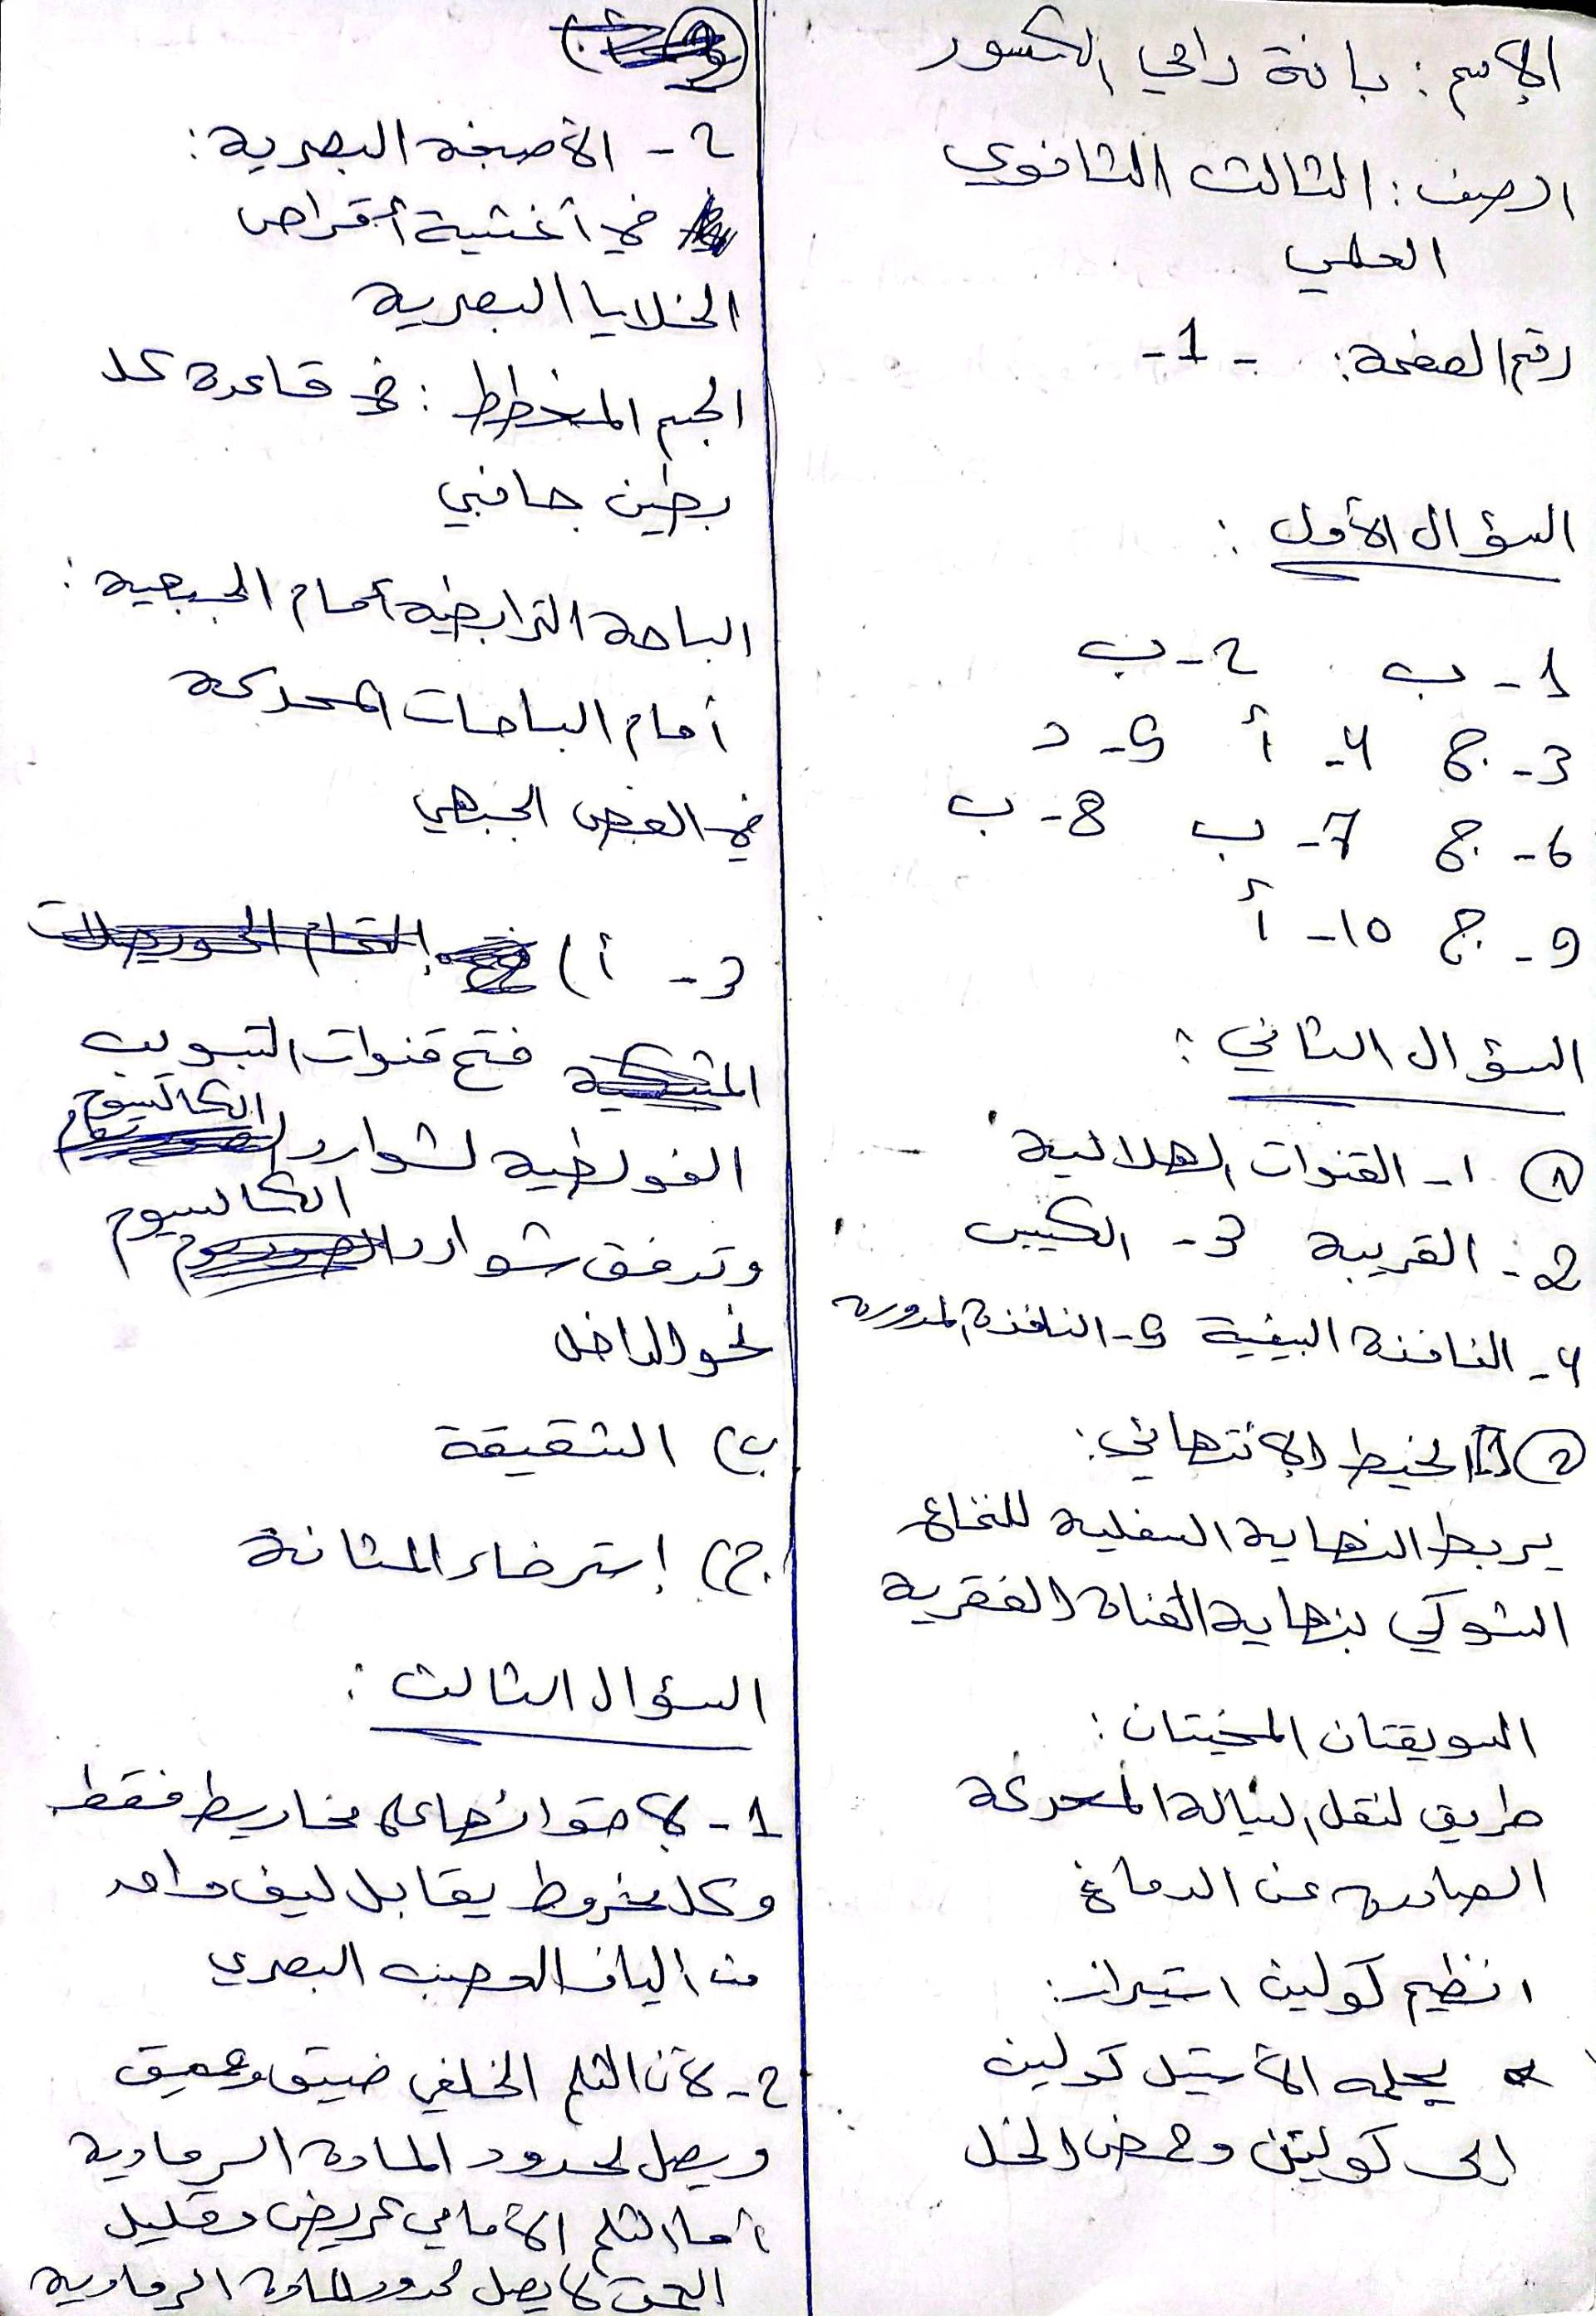 الإسم : بانة رامي الكسور
الصف : الثالث الثانوي
العلمي
رقم الصفحة : - 1 -
السؤال الأول :
1 - ب 2 - ب
3 - ج 4 - أ 5 - د
6 - ج 7 - ب 8 - ب
9 - ج 10 - أ
السؤال الثاني :
① 1 - القنوات الهلالية
2 - القريبة 3 - الكييس
4 - النافذة البيضية 5 - النافذة المدورة
② الخيط الإنتهائي :
يربط النهاية السفلية للنخاع
الشوكي بنهاية القناة الفقرية
السويقتان المخيتان :
طريق لنقل السيالة المحركة
الصادرة عن الدماغ
انظيم كولين استيراز :
يحلمه الأستيل كولين
إلى كولين وحمض الخل
2 - الأصبغة البصرية :
في أغشية أقراص
الخلايا البصرية
الجسم المخطط : في قاعدة كل
بطين جانبي
الباحة الترابطية أمام الجبهية :
أمام الباحات المحركة
في الفص الجبهي
3 - أ )
فتح قنوات التبويب
الفولطية لشوارد الكالسيوم
وتدفق شوارد الكالسيوم
نحو الداخل
ب ) الشقيقة
ج ) إسترخاء المثانة
السؤال الثالث :
1 - لاحتوائها على مخاريط فقط
وكل مخروط يقابل ليف واحد
من ألياف العصب البصري
2 - لأن الثلم الخلفي ضيق وعميق
ويصل لحدود المادة الرمادية
أما الثلم الأمامي عريض وقليل
العمق لا يصل لحدود المادة الرمادية